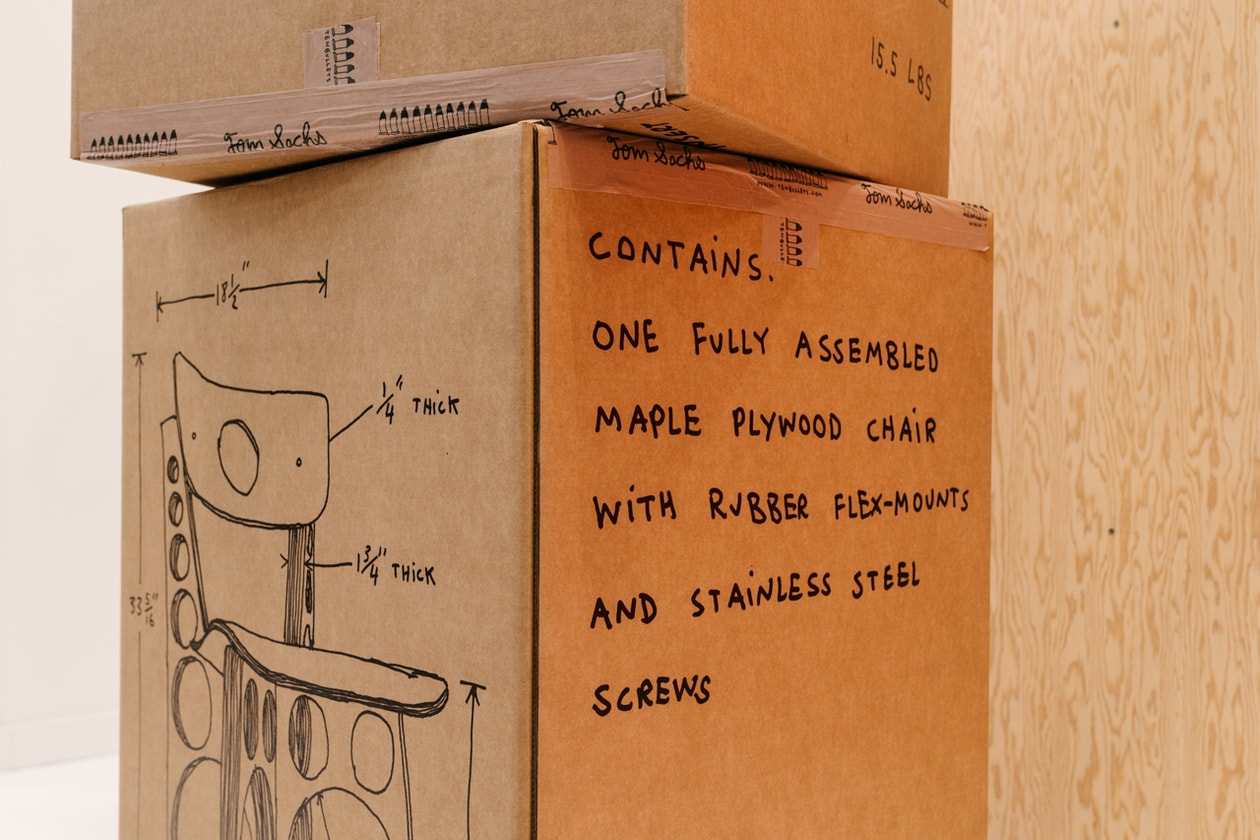 TENBULLETS
15.5 LBS
Tom Sachs
Tom Sachs
Tom Sachs
www.tenbullets.com
Tom Sachs
TENBULLETS
CONTAiNS.
ONE FULLY ASSEMBLED
MAPLE PLYWOOD CHAiR
WiTH RUBBER FLEX-MOUNTS
AND STAiNLESS STEEL
SCREWS
18 1/2"
1/4" THiCK
1 3/4" THiCK
33 5/16"